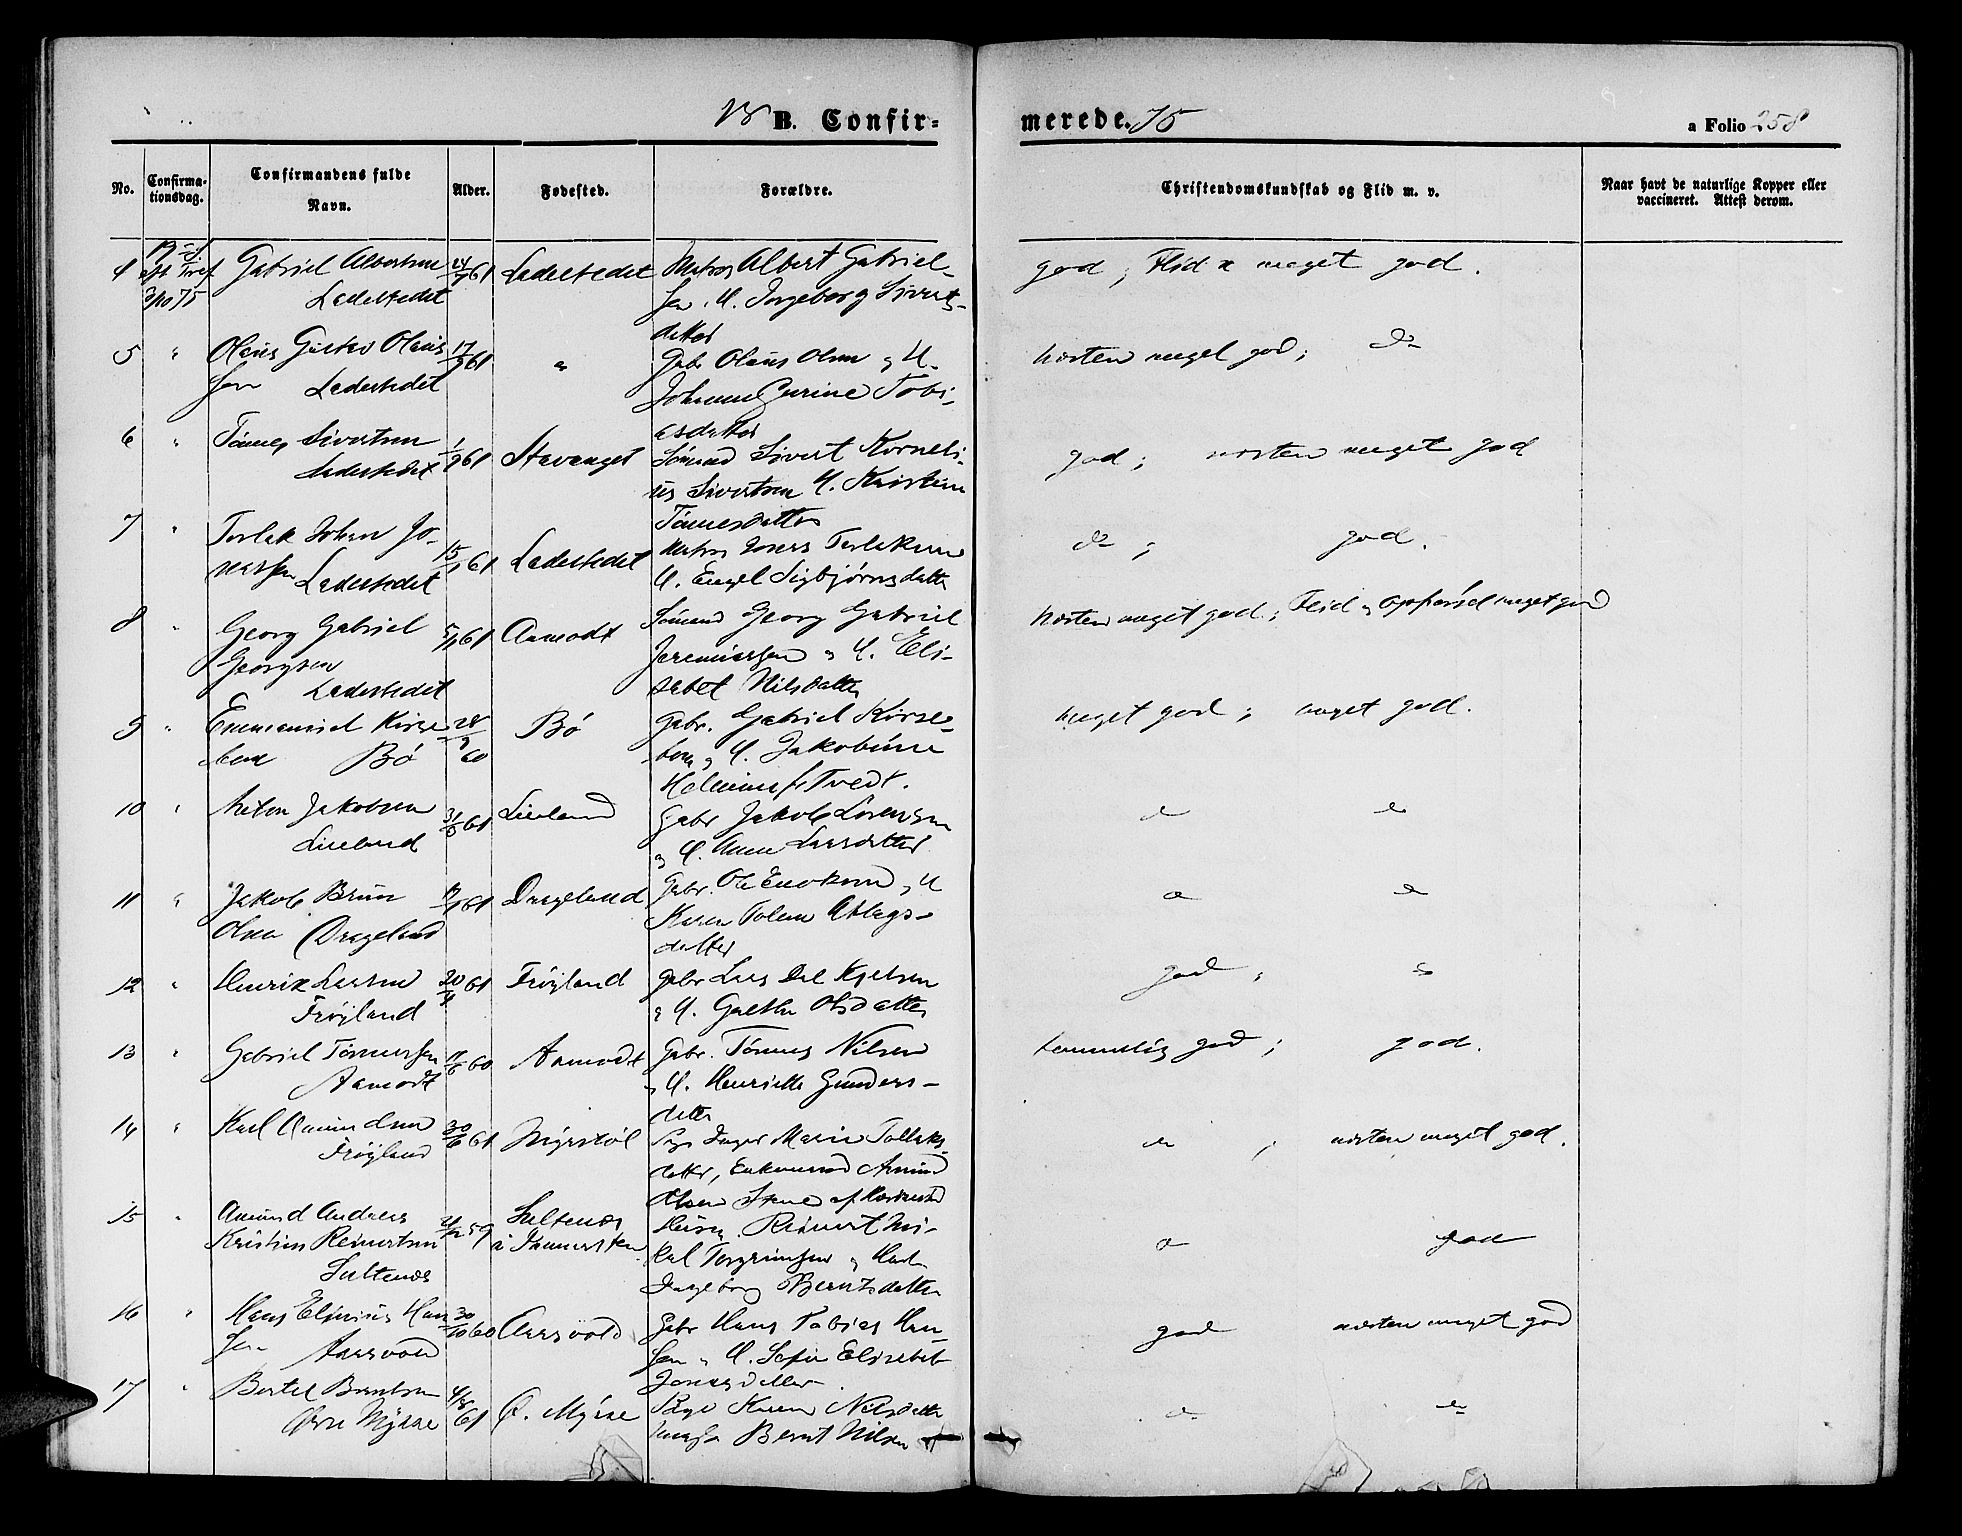 18 B. Confir-
merede. 75
a Folio 258
No.
Confirma-
tionsdag.
Confirmandens fulde
Navn.
Alder.
Fødested.
Forældre.
Christendomskundskab og Flid m. v.
Naar havt de naturlige Kopper eller
vaccineret. Attest derom.
4
19 S.
eft Tref
3/10 75
Gabriel Albertsen
Ladestedet
61
Ladestedet
Matros Albert Gabriel-
sen. H. Ingeborg Siverts-
datter
god; Flid meget god.
5 "
Olaus Gustav Olaus
sen Ladestedet
17/9 61
"
Gabr Olaus Olsen og H.
Johanne Gurine Tobi-
asdatter
næsten meget god; do
6 "
Tønnes Sivertsen
Ladestedet
1/9 61
Stavanger
Sømand Sivert Korneli-
us Sivertsen H. Kristine
Tønnesdatter
god; næsten meget god
7 "
Torlak Johan Jo-
nassen Ladestedet
15/1 61
Ladestedet
Matros Jonas Torlaksen
H. Engel Sigbjørnsdatter
do; god.
8 "
Georg Gabriel
Georgsen
Ladestedet
61
Aamodt
Sømand Georg Gabriel
Jeremiassen og H. Eli-
sabet Nilsdatter
næsten meget god; Flid og Opførsel meget god
9 "
Emmanuel Kirse
bom Bø
28/9 60
Bø
Gabr. Gabriel Kirse-
bom og H. Jakobine
Helmine f. Tvedt.
meget god; meget god.
10 "
Anton Jakobsen
Liland
31/5 61
Liland
Gabr Jakob Sørensen
og H. Anne Larsdatter
" "
11 "
Jakob Brun
Olsen Drageland
61
Drageland
Gabr. Ole Enoksen og H
Karen Tolene Atlags-
datter
" "
12 "
Henrik Larsen
Frøyland
20/4 61
Frøyland
Gabr Lars Dal Kjelsen
og H. Gurthe Olsdatter
god; "
13 "
Gabriel Tønnessen
Aamodt
17/6 60
Aamodt
Gabr. Tønnes Nilsen
og H. Henriette Gunders-
datter
temmelig god; god.
14 "
Karl Amundsen
Frøyland
30/6 61
Myrstøl
Pige Inger Marie Tollaks-
datter, Enkemand Amund
Olsen
"; næsten meget god.
15 "
Amund Andreas
Kristian Reinertsen
Sultenæs
59
Sultenæs
Husm. Reinert Mi-
kal Torgrimsen og H
Ingeborg Berntsdatter
" god
16 "
Hans Elenius Han
sen Aarsvold
30/10 60
Aarsvold
Gabr Hans Tobias Han-
sen og H. Sofie Elisabet
Jonasdatter.
god næsten meget god
17 "
Bertel Berntsen
Øvre Mysse
4/8 61
Ø. Mysse
Pige Karen Nilsdatter
Ungk. Bernt Nilsen
" "